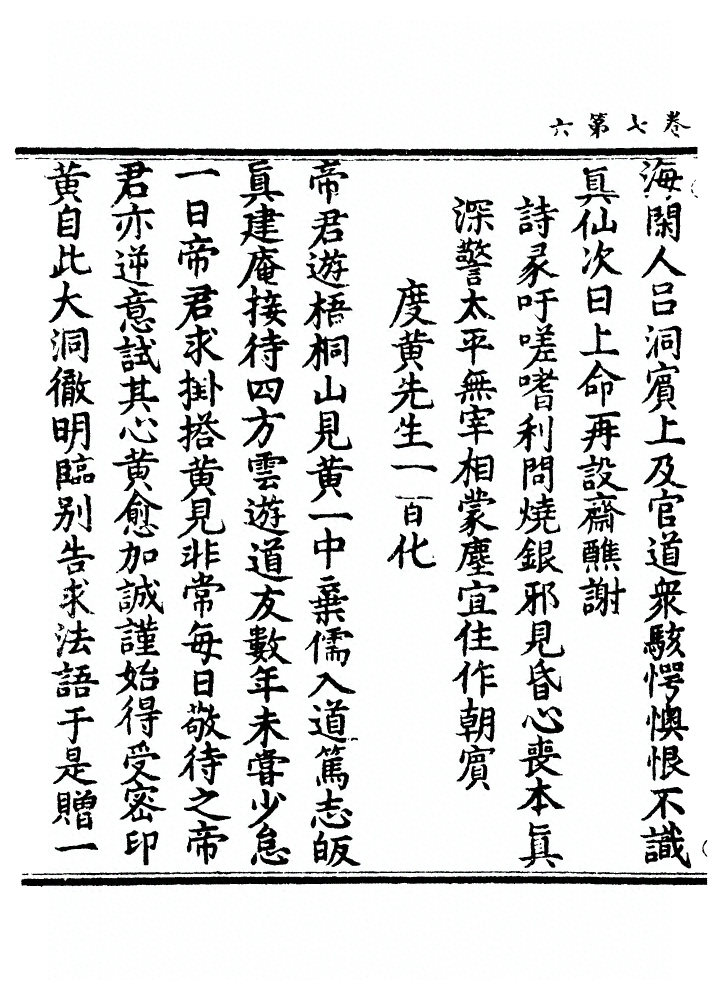 卷七第六
海閑人呂洞賓上及官道衆駭愕懊恨不識
真仙次日上命再設齋醮謝
詩彖吁嗟嗜利問燒銀邪見昏心喪本真
深警太平無宰相蒙塵宜住作朝賓
度黄先生一百化
帝君遊梧桐山見黄一中棄儒入道篤志皈
真建庵接待四方雲遊道友數年未嘗少怠
一日帝君求掛搭黄見非常每日敬待之帝
君亦逆意試其心黄愈加誠謹始得受密印
黄自此大洞徹明臨别告求法語于是贈一